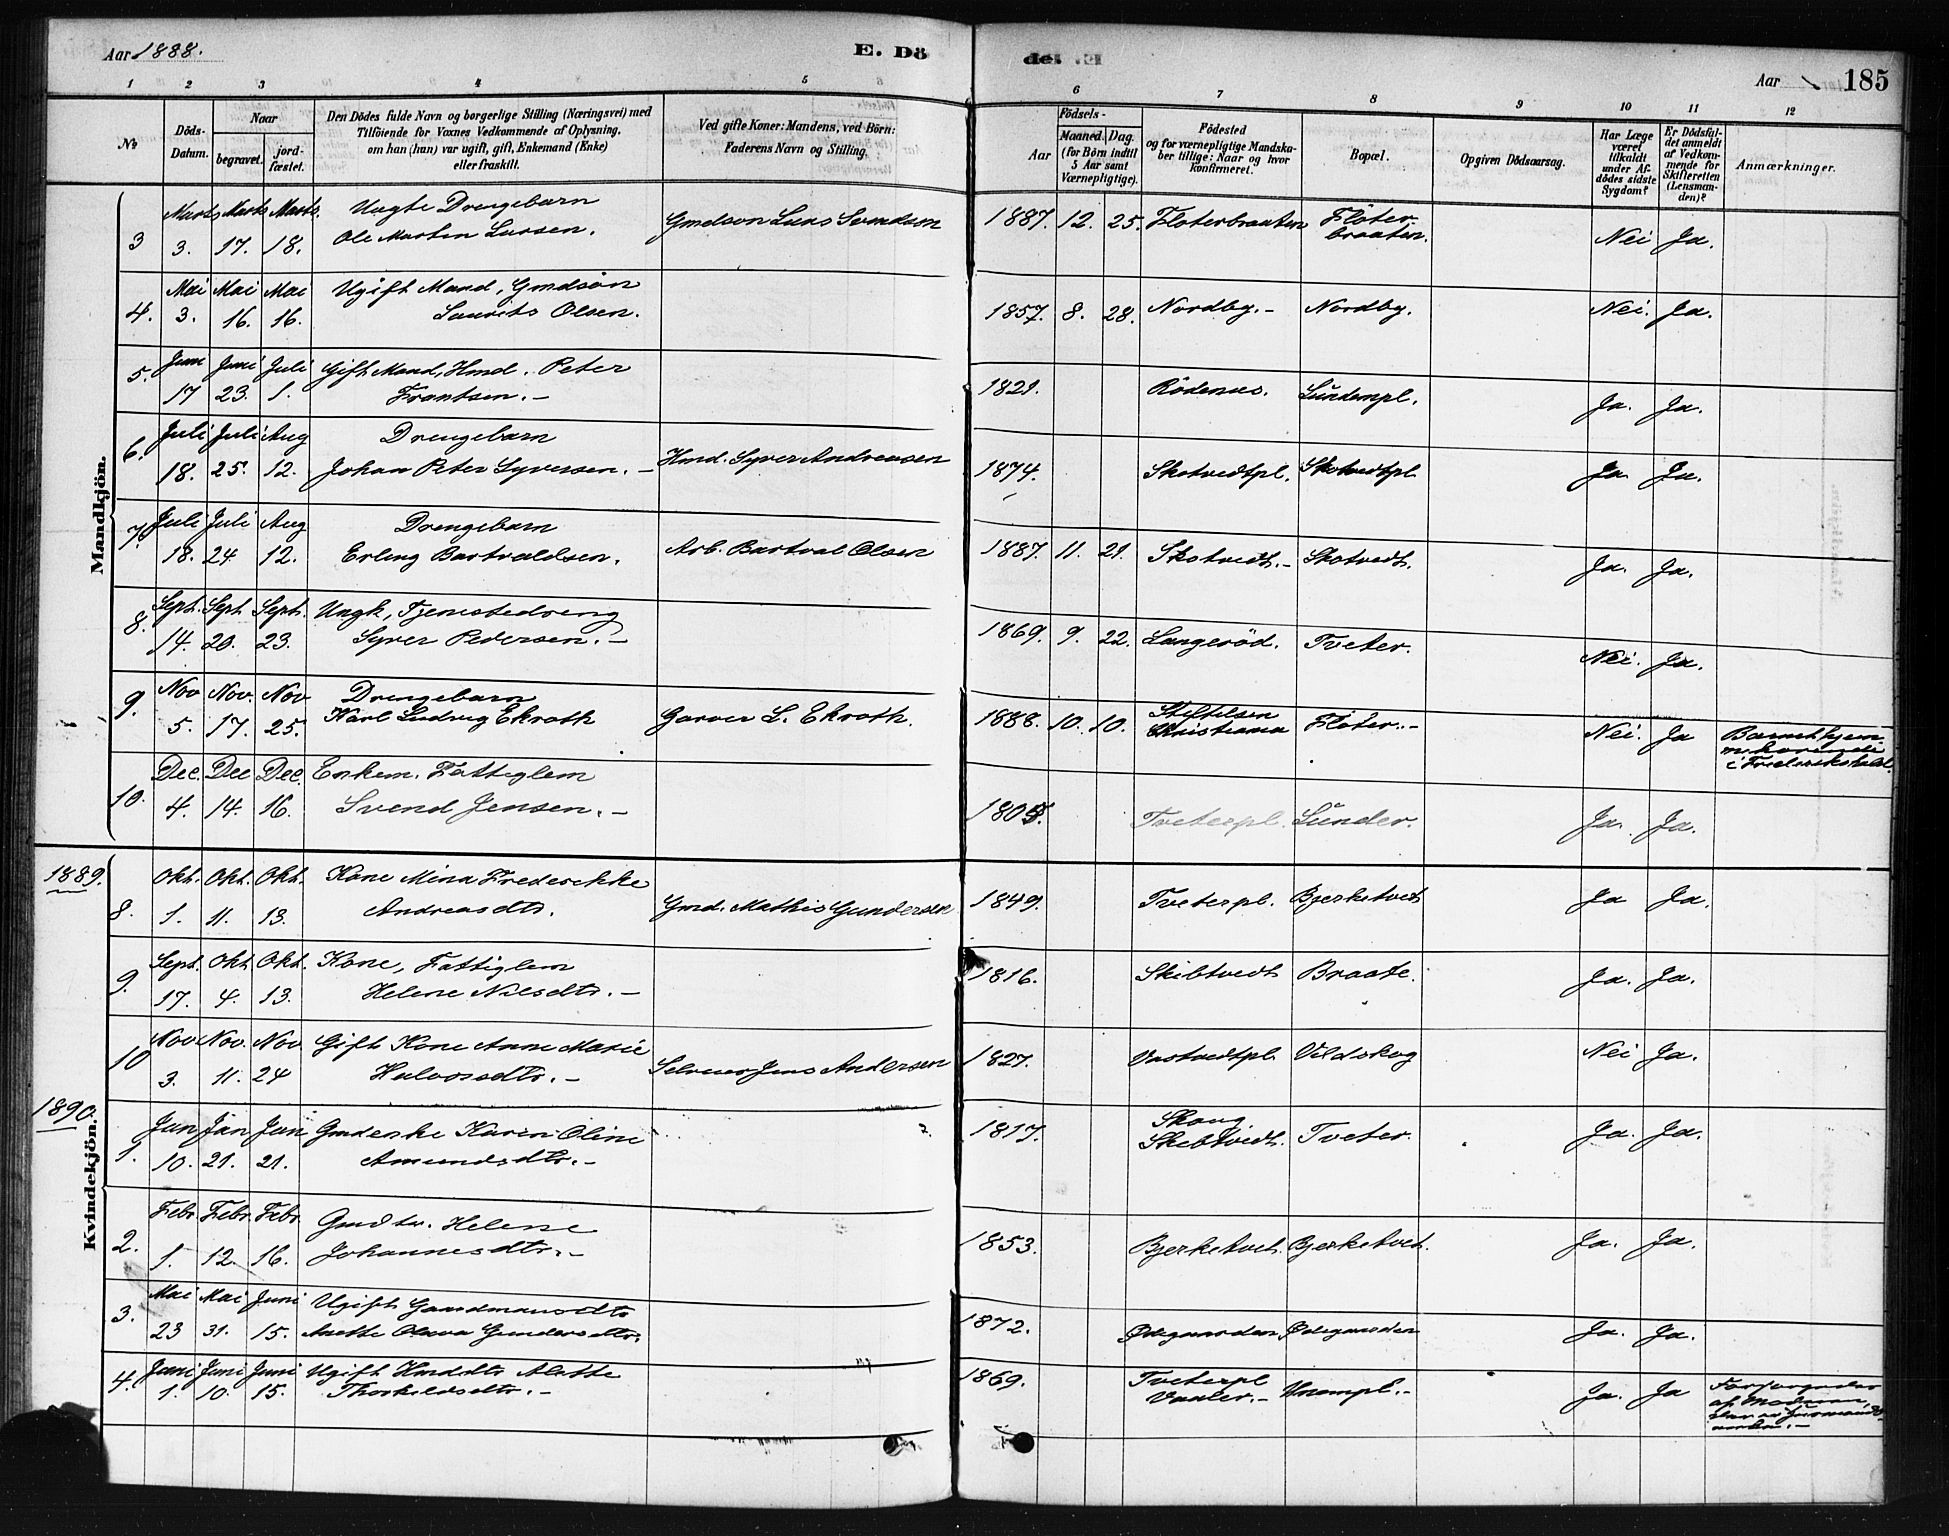 Aar 1888. E. Dö
de. .E Aar 185
1 2 3 4 5 6 7 8 9 10 11 12
№
Döds-Datum.
Naar
begravet.
jordfæstet.
Den Dödes fulde Navn og borgerlige Stilling (Næringsvei) med
Tilföiende for Voxnes Vedkommende af Oplysning,
om han (hun) var ugift, gift, Enkemand (Enke)
eller fraskilt.
Ved gifte Koner: Mandens, ved Börn:
Faderens Navn og Stilling.
Födsels-
Aar
Maaned. Dag.
(for Börn indtil
5 Aar samt
Værnepligtige).
Födested
og for værnepligtige Mandskaber tillige: Naar og hvor
konfirmeret.
Bopæl.
Opgiven Dödsaarsag.
Har Læge
været
tilkaldt
under Afdödes sidste
Sygdom?
Er Dödsfaldet anmeldt
af Vedkommende for
Skifteretten
(Lensmanden)?
Anmærkninger.
Mandkjön.
3 Marts 3. Marts 17. Marts 18. Uægte Drengebarn
Ole Martin Larsen. Gmdsøn Lars Svendsen 1887. 12. 25. Fløterbraaten Fløterbraaten. Nei Ja.
4. Mai 3. Mai 16. Mai 16. Ugift Mand, Gmdsøn
Laurits Olsen. 1857. 8. 28. Nordby.- Nordby. Nei. Ja.
5. Juni 17 Juni 23. Juli 1. Gift Mand, Hmd. Peter
Frantsen.- 1821. Rödenæs. Lundempl. Ja. Ja.
6. Juli 18. Juli 25. Aug 12. Drengebarn
Johan Peter Syversen.- Hmd. Syver Andreasen 1874. Skotvedtpl. Skotvedtpl Ja Ja.
7. Juli 18. Juli 24. Aug 12. Drengebarn
Erling Bartvaldsen. Arb. Bartval Olsen 1887. 11. 21. Skotvedt.- Skotvedt. Ja. Ja.
8. Sept. 14. Sept 20. Sept. 23. Ungk, Tjenestedreng
Syver Pedersen.- 1869. 9. 22. Langeröd. Tveter. Nei. Ja.
9. Nov 5. Nov. 17. Nov 25. Drengebarn
Karl Ludvig Ekroth Garver L. Ekroth. 1888. 10. 10. Stiftelsen
Christiania Fløter.- Nei. Ja Barnet hjem
i Fredrikshald.
10. Dec. 4. Dec 14. Dec. 16. Enkem. Fattiglem
Svend Jensen.- 1805. Tveterpl. Lunder. Ja. Ja.
1889.
8. Okt. 1. Okt. 11. Okt. 13. Kone Mina Frederikke
Andreasdtr. Gmd. Mathis Gundersen 1849. Tveterpl. Bjerketvet Ja Ja.
9. Sept. 17. Okt. 4. Okt. 13. Kone, Fattiglem
Helene Nilsdtr.- 1816. Skibtvedt Braate. Ja. Ja.
10 Nov 3. Nov. 11. Nov 24 Gift Kone Anne Marie
Halvorsdtr.- Selveier Jens Andersen 1827. Vestvedtpl Vildskog Nei Ja.
1890.
Kvindekjön.
1. Jan 10. Jan 21. Jan 21. Gmdenke Karen Oline
Amundsdtr.- 1817. Skaug
Skibtvedt. Tveter. Ja. Ja.
2. Febr. 1. Febr. 12. Febr. 16. Gmdtr. Helene
Johannesdtr.- 1853. Bjerketvet. Bjerketvet. Ja. Ja.
3. Mai 23 Mai 31. Juni 15. Ugift Gaardmandsdtr
Anette Olava Gundersdtr. 1872. Ødegaarden, Ødegaarden Ja. Ja.
4. Juni 1. Juni 10. Juni 15. Ugift Hmddtr Alette
Thorkildsdtr.- 1869. Tveterpl
Vaaler.- Ja. Ja